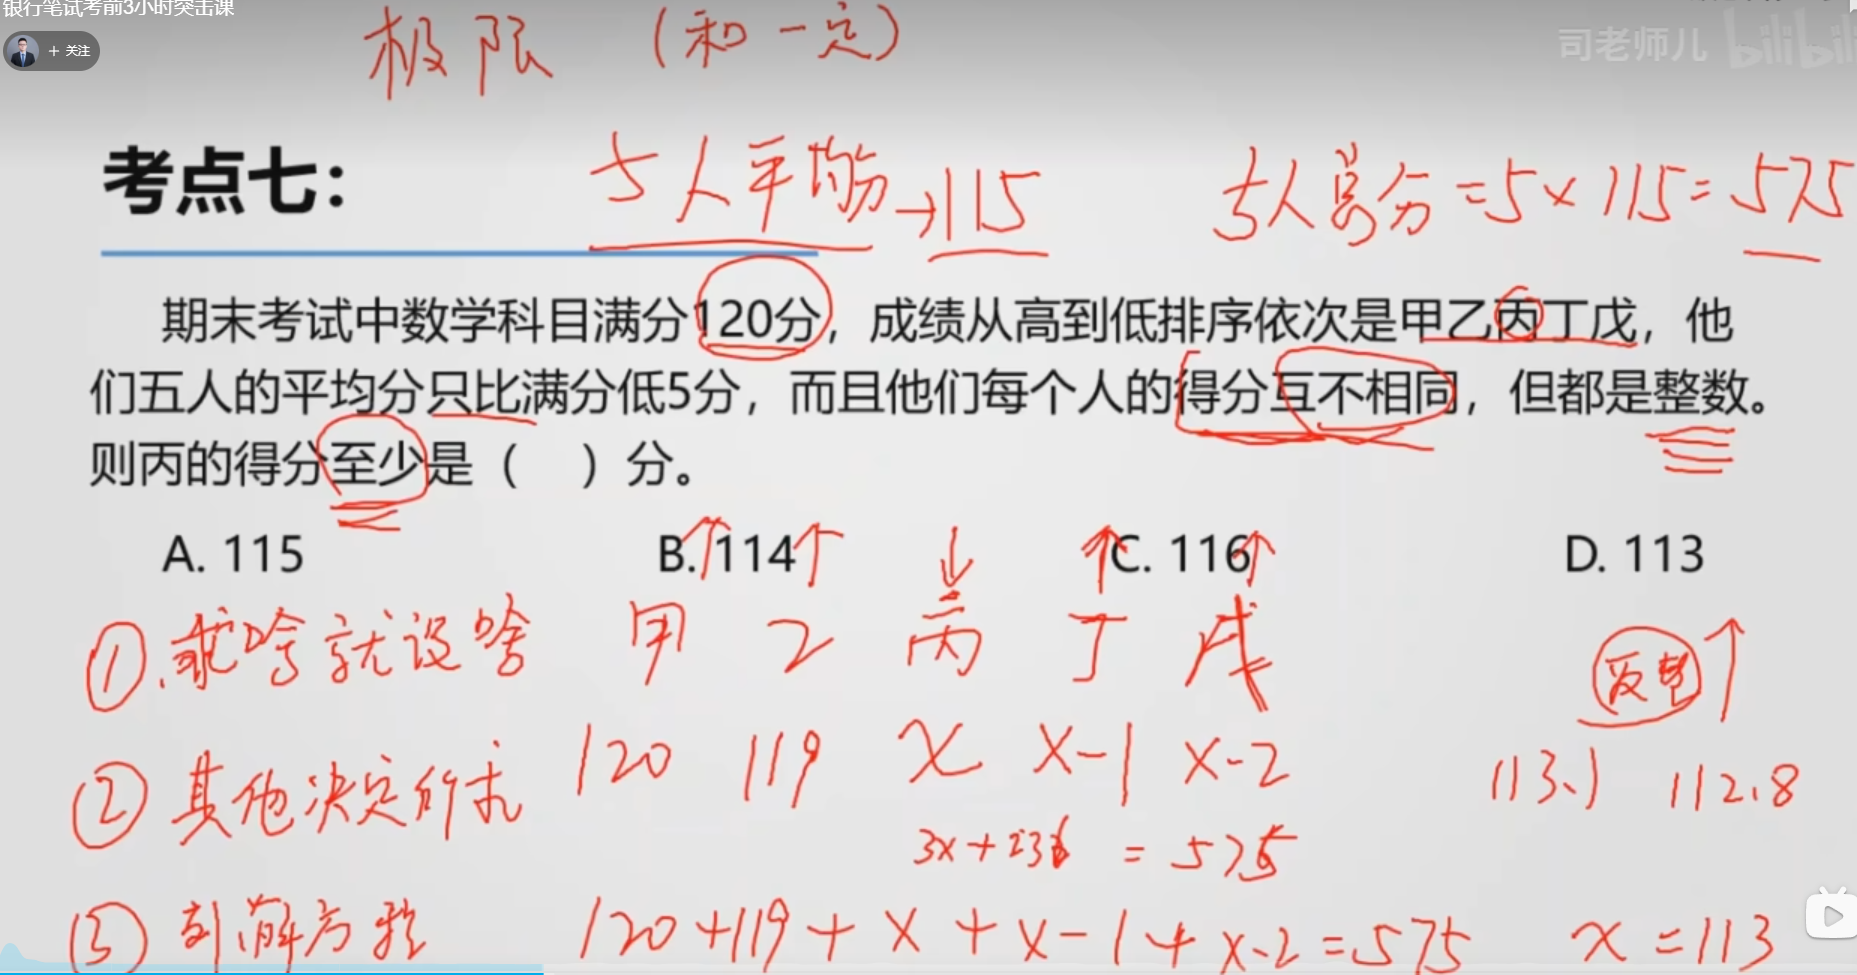 银行笔试考前3小时突击课
+ 关注
司老师儿 bilibili
极限 (和一定)
考点七:
五人平均分→115
五人总分=5×115=575
期末考试中数学科目满分120分，成绩从高到低排序依次是甲乙丙丁戊，他
们五人的平均分只比满分低5分，而且他们每个人的得分互不相同，但都是整数。
则丙的得分至少是（ ）分。
A. 115 B. 114 C. 116 D. 113
①.求啥就设啥 甲 乙 丙 丁 戊
②其他决定所求 120 119 x x-1 x-2 113.1 112.8
3x+236 = 575
③列解方程 120+119+x+x-1+x-2=575 x=113